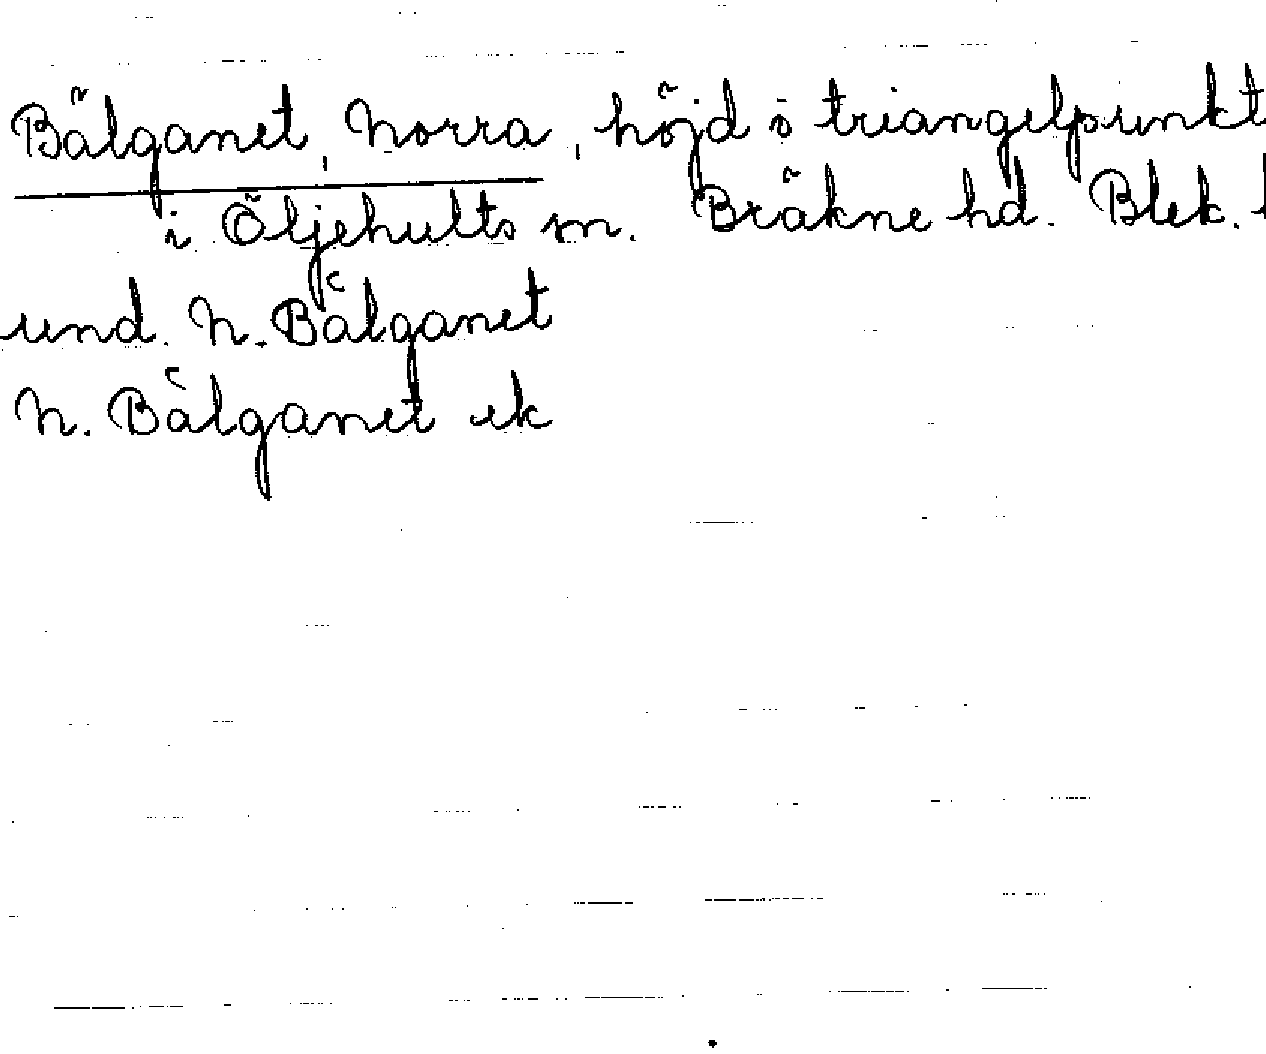 Bälganet, Norra, höjd o triangelpunkt
i Öljehults sn. Bräkne hd. Blek.
und. N. Bälganet
N. Bälganet ek